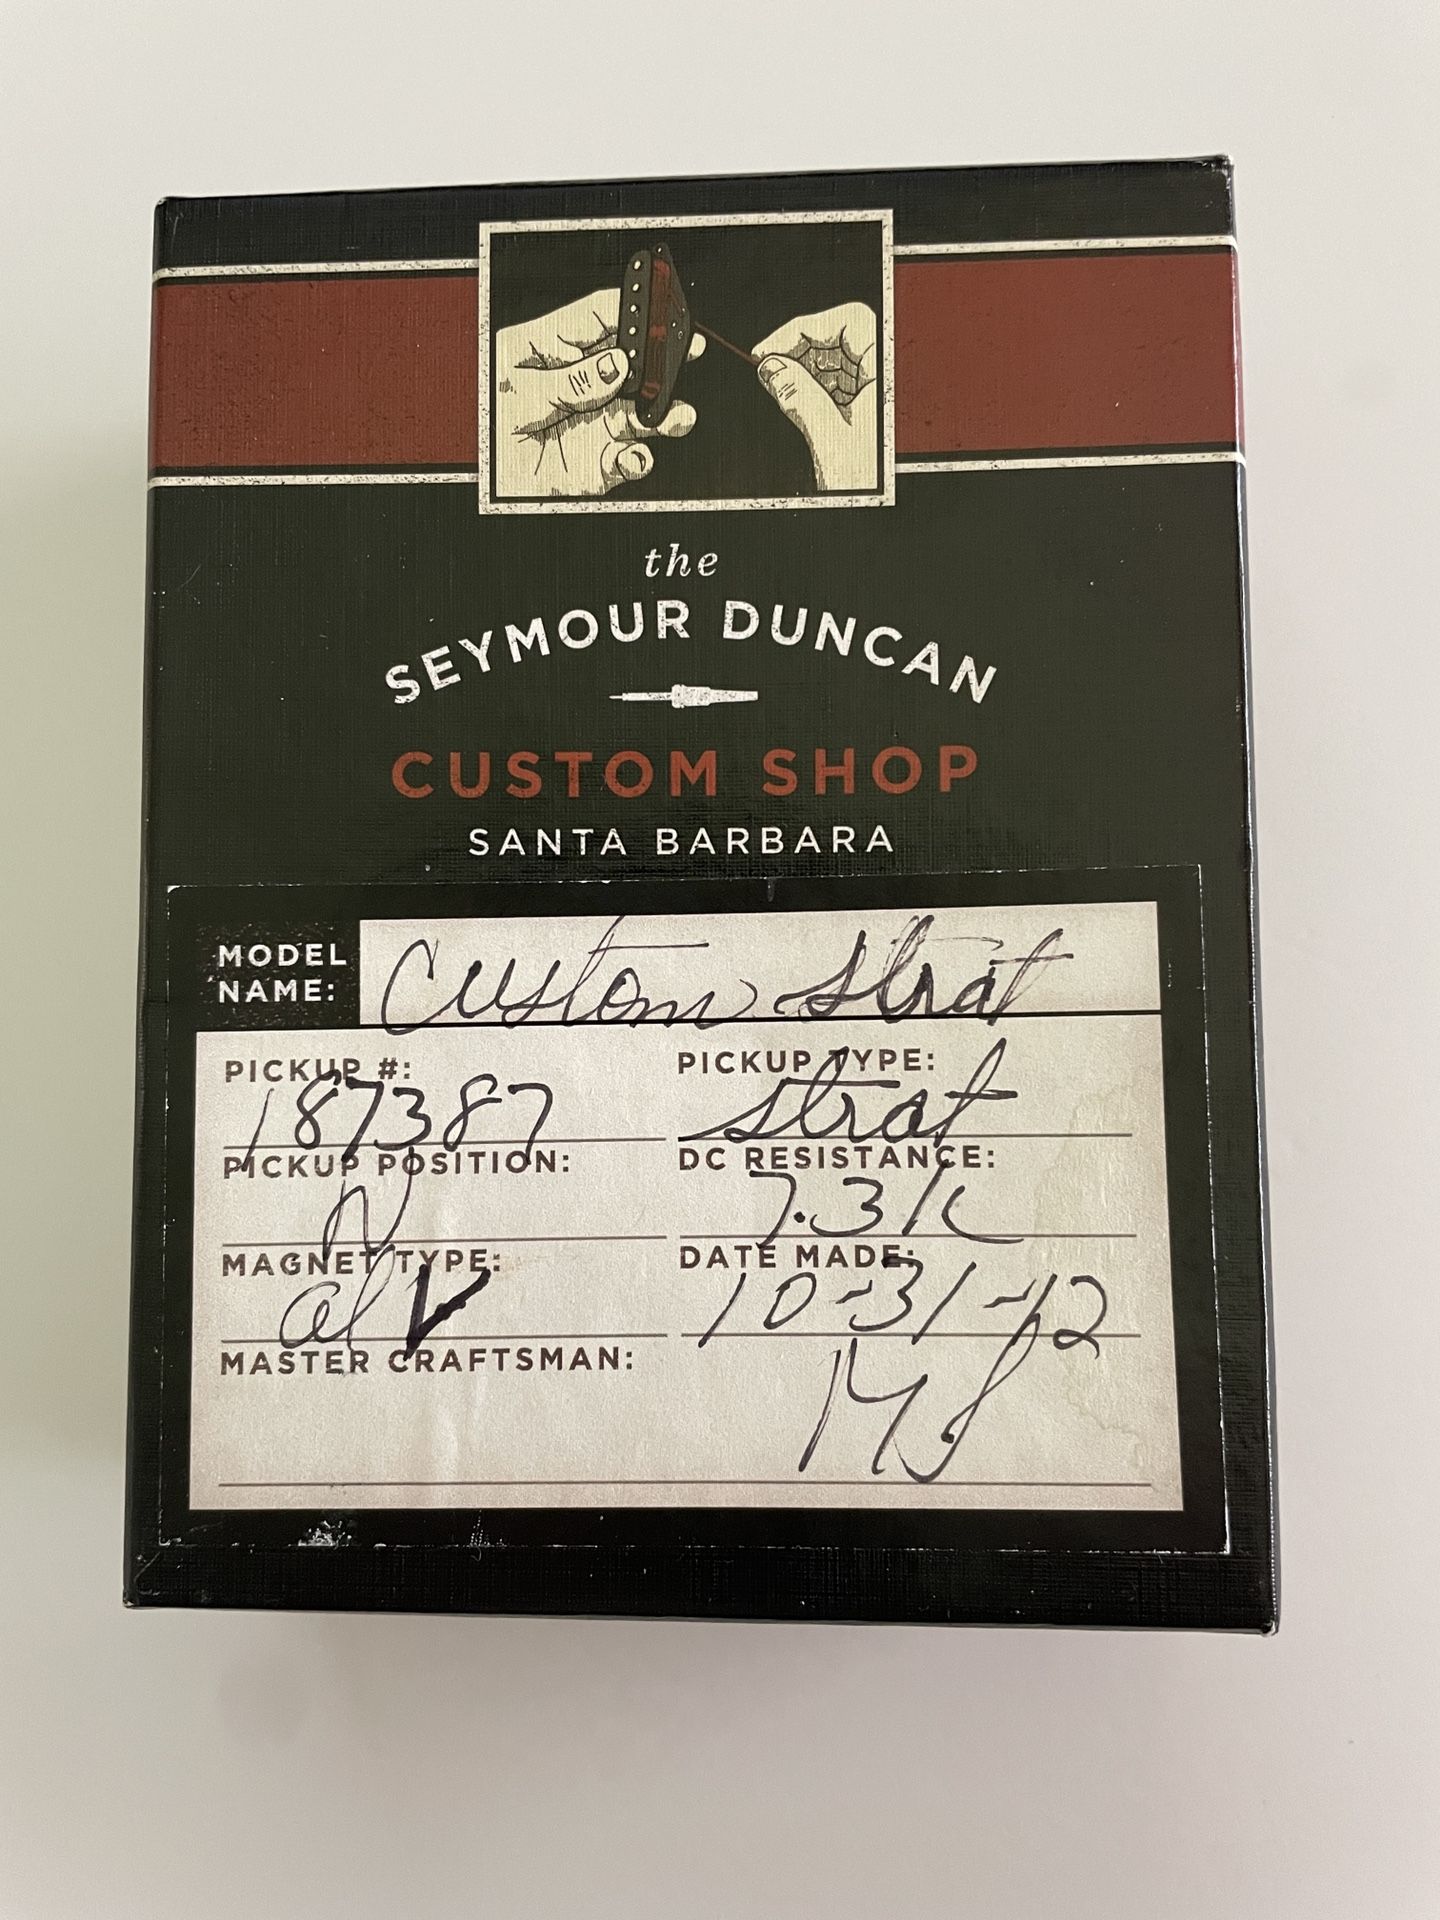 the
SEYMOUR DUNCAN
CUSTOM SHOP
SANTA BARBARA
MODEL NAME: Custom Strat
PICKUP #: 187387
PICKUP TYPE: Strat
PICKUP POSITION: N
DC RESISTANCE: 7.3K
MAGNET TYPE: al V
DATE MADE: 10-31-12
MASTER CRAFTSMAN: MJ